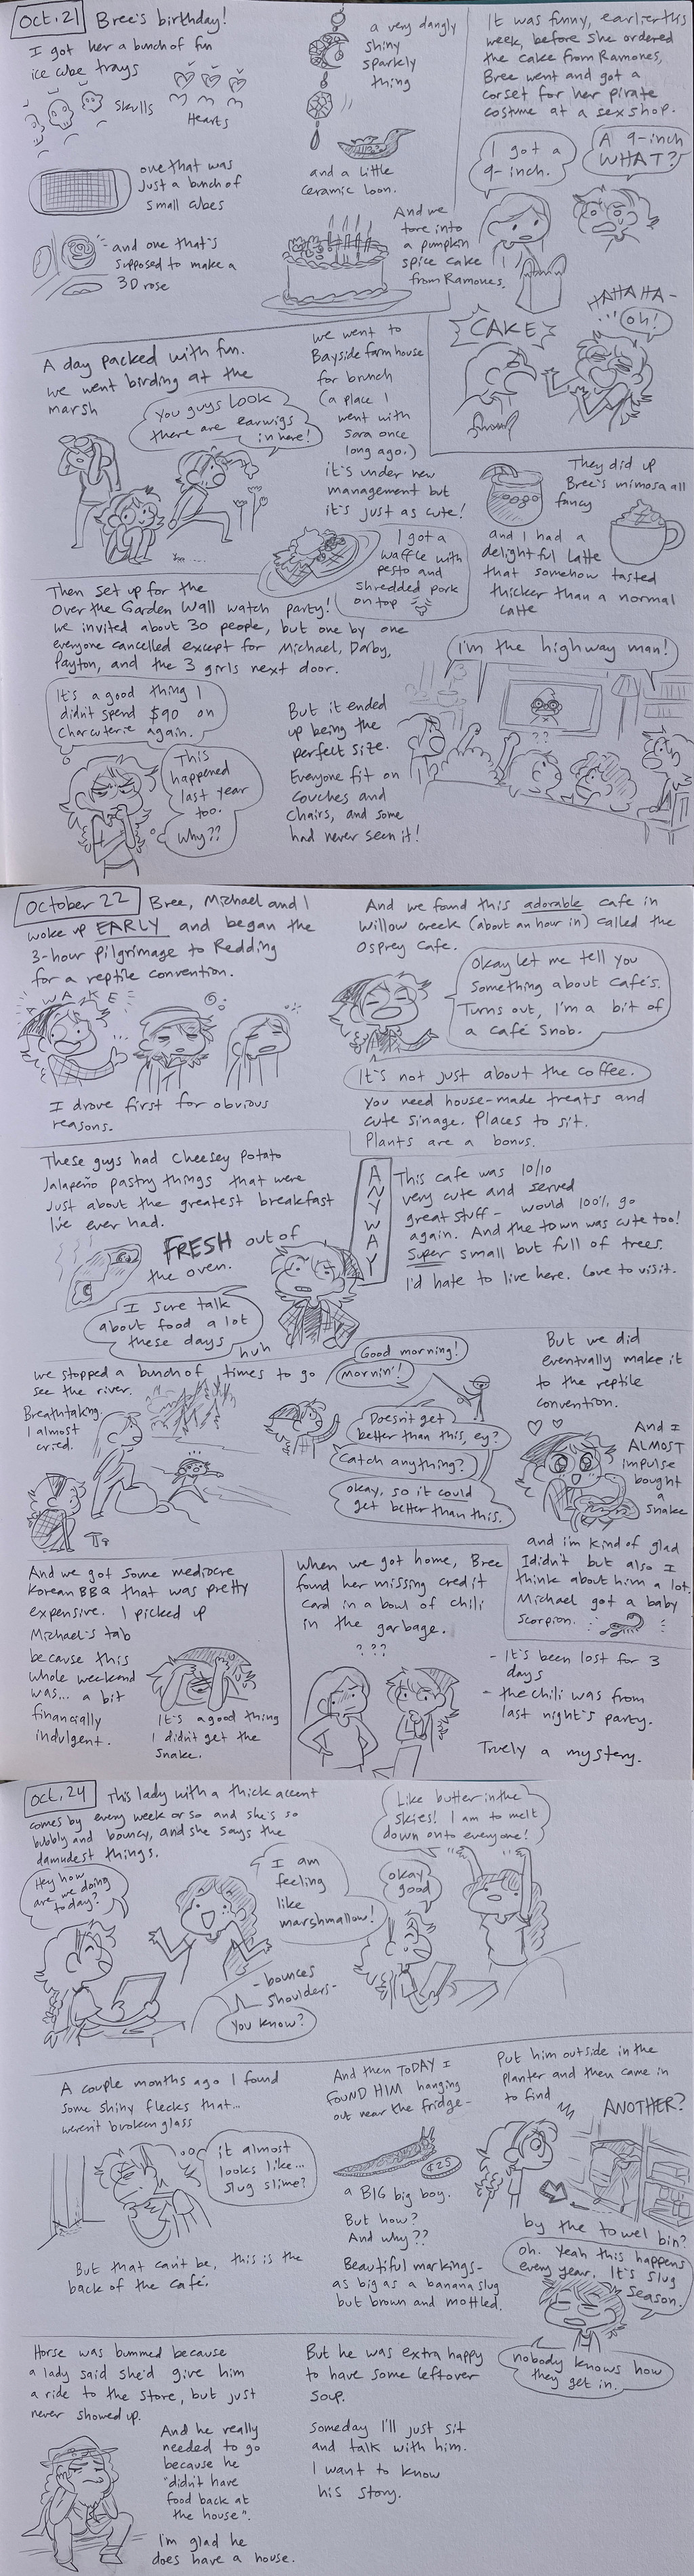 Oct. 21
Bree's birthday!
I got her a bunch of fun
ice cube trays
Skulls
Hearts
one that was
just a bunch of
small cubes
and one that's
supposed to make a
3D rose
a very dangly
shiny
sparkly
thing
and a little
ceramic loon.
And we
tore into
a pumpkin
spice cake
from Ramones.
It was funny, earlier this
week, before she ordered
the cake from Ramones,
Bree went and got a
corset for her pirate
costume at a sex shop.
I got a
9-inch.
A 9-inch
WHAT?
CAKE
HAHAHA-
oh!
A day packed with fun.
we went birding at the
marsh
You guys LOOK
there are earwigs
in here!
we went to
Bayside farmhouse
for brunch
(a place I
went with
Sara once
long ago.)
it's under new
management but
it's just as cute!
I got a
waffle with
pesto and
shredded pork
on top
They did up
Bree's mimosa all
fancy
and I had a
delightful latte
that somehow tasted
thicker than a normal
latte
Then set up for the
Over the Garden Wall watch party!
we invited about 30 people, but one by one
everyone cancelled except for Michael, Darby,
Payton, and the 3 girls next door.
It's a good thing I
didn't spend $90 on
Charcuterie again.
This
happened
last year
too.
Why??
But it ended
up being the
perfect size.
Everyone fit on
couches and
chairs, and some
had never seen it!
I'm the highway man!
??
October 22
Bree, Michael and I
woke up EARLY and began the
3-hour pilgrimage to Redding
for a reptile convention.
WAKE
I drove first for obvious
reasons.
And we found this adorable cafe in
Willow creek (about an hour in) called the
Osprey Cafe.
Okay let me tell you
something about café's.
Turns out, I'm a bit of
a café snob.
It's not just about the coffee.
You need house-made treats and
cute sinage. Places to sit.
Plants are a bonus.
These guys had cheesey potato
Jalapeño pastry things that were
just about the greatest breakfast
I've ever had.
FRESH out of
the oven.
I sure talk
about food a lot
these days
huh
ANYWAY
This cafe was 10/10
very cute and served
great stuff- would 100% go
again. And the town was cute too!
Super small but full of trees.
I'd hate to live here. Love to visit.
we stopped a bunch of times to go
see the river.
Breathtaking.
I almost
cried.
Good morning!
Mornin'!
Doesn't get
better than this, ey?
Catch anything?
okay, so it could
get better than this.
But we did
eventually make it
to the reptile
convention.
And I
ALMOST
impulse
bought
a
snake
and i'm kind of glad
I didn't but also I
think about him a lot.
Michael got a baby
scorpion.
And we got some mediocre
Korean BBQ that was pretty
expensive. I picked up
Michael's tab
because this
whole weekend
was... a bit
financially
indulgent.
It's a good thing
I didn't get the
snake.
When we got home, Bree
found her missing credit
card in a bowl of chili
in the garbage.
???
- It's been lost for 3
days
- the chili was from
last night's party.
Truely a mystery.
Oct. 24
This lady with a thick accent
comes by every week or so and she's so
bubbly and bouncy, and she says the
damndest things.
Hey how
are we doing
today?
I am
feeling
like
marshmallow!
- bounces
shoulders-
You know?
Like butter in the
skies! I am to melt
down onto everyone!
okay
good
A couple months ago I found
some shiny flecks that...
weren't broken glass
it almost
looks like...
slug slime?
But that can't be, this is the
back of the café.
And then TODAY I
FOUND HIM hanging
out near the fridge-
a BIG big boy.
But how?
And why??
Beautiful markings-
as big as a banana slug
but brown and mottled.
Put him outside in the
planter and then came in
to find
ANOTHER?
by the towel bin?
oh. Yeah this happens
every year. It's slug
season.
nobody knows how
they get in.
Horse was bummed because
a lady said she'd give him
a ride to the store, but just
never showed up.
And he really
needed to go
because he
"didn't have
food back at
the house".
I'm glad he
does have a house.
But he was extra happy
to have some leftover
soup.
Someday I'll just sit
and talk with him.
I want to know
his story.